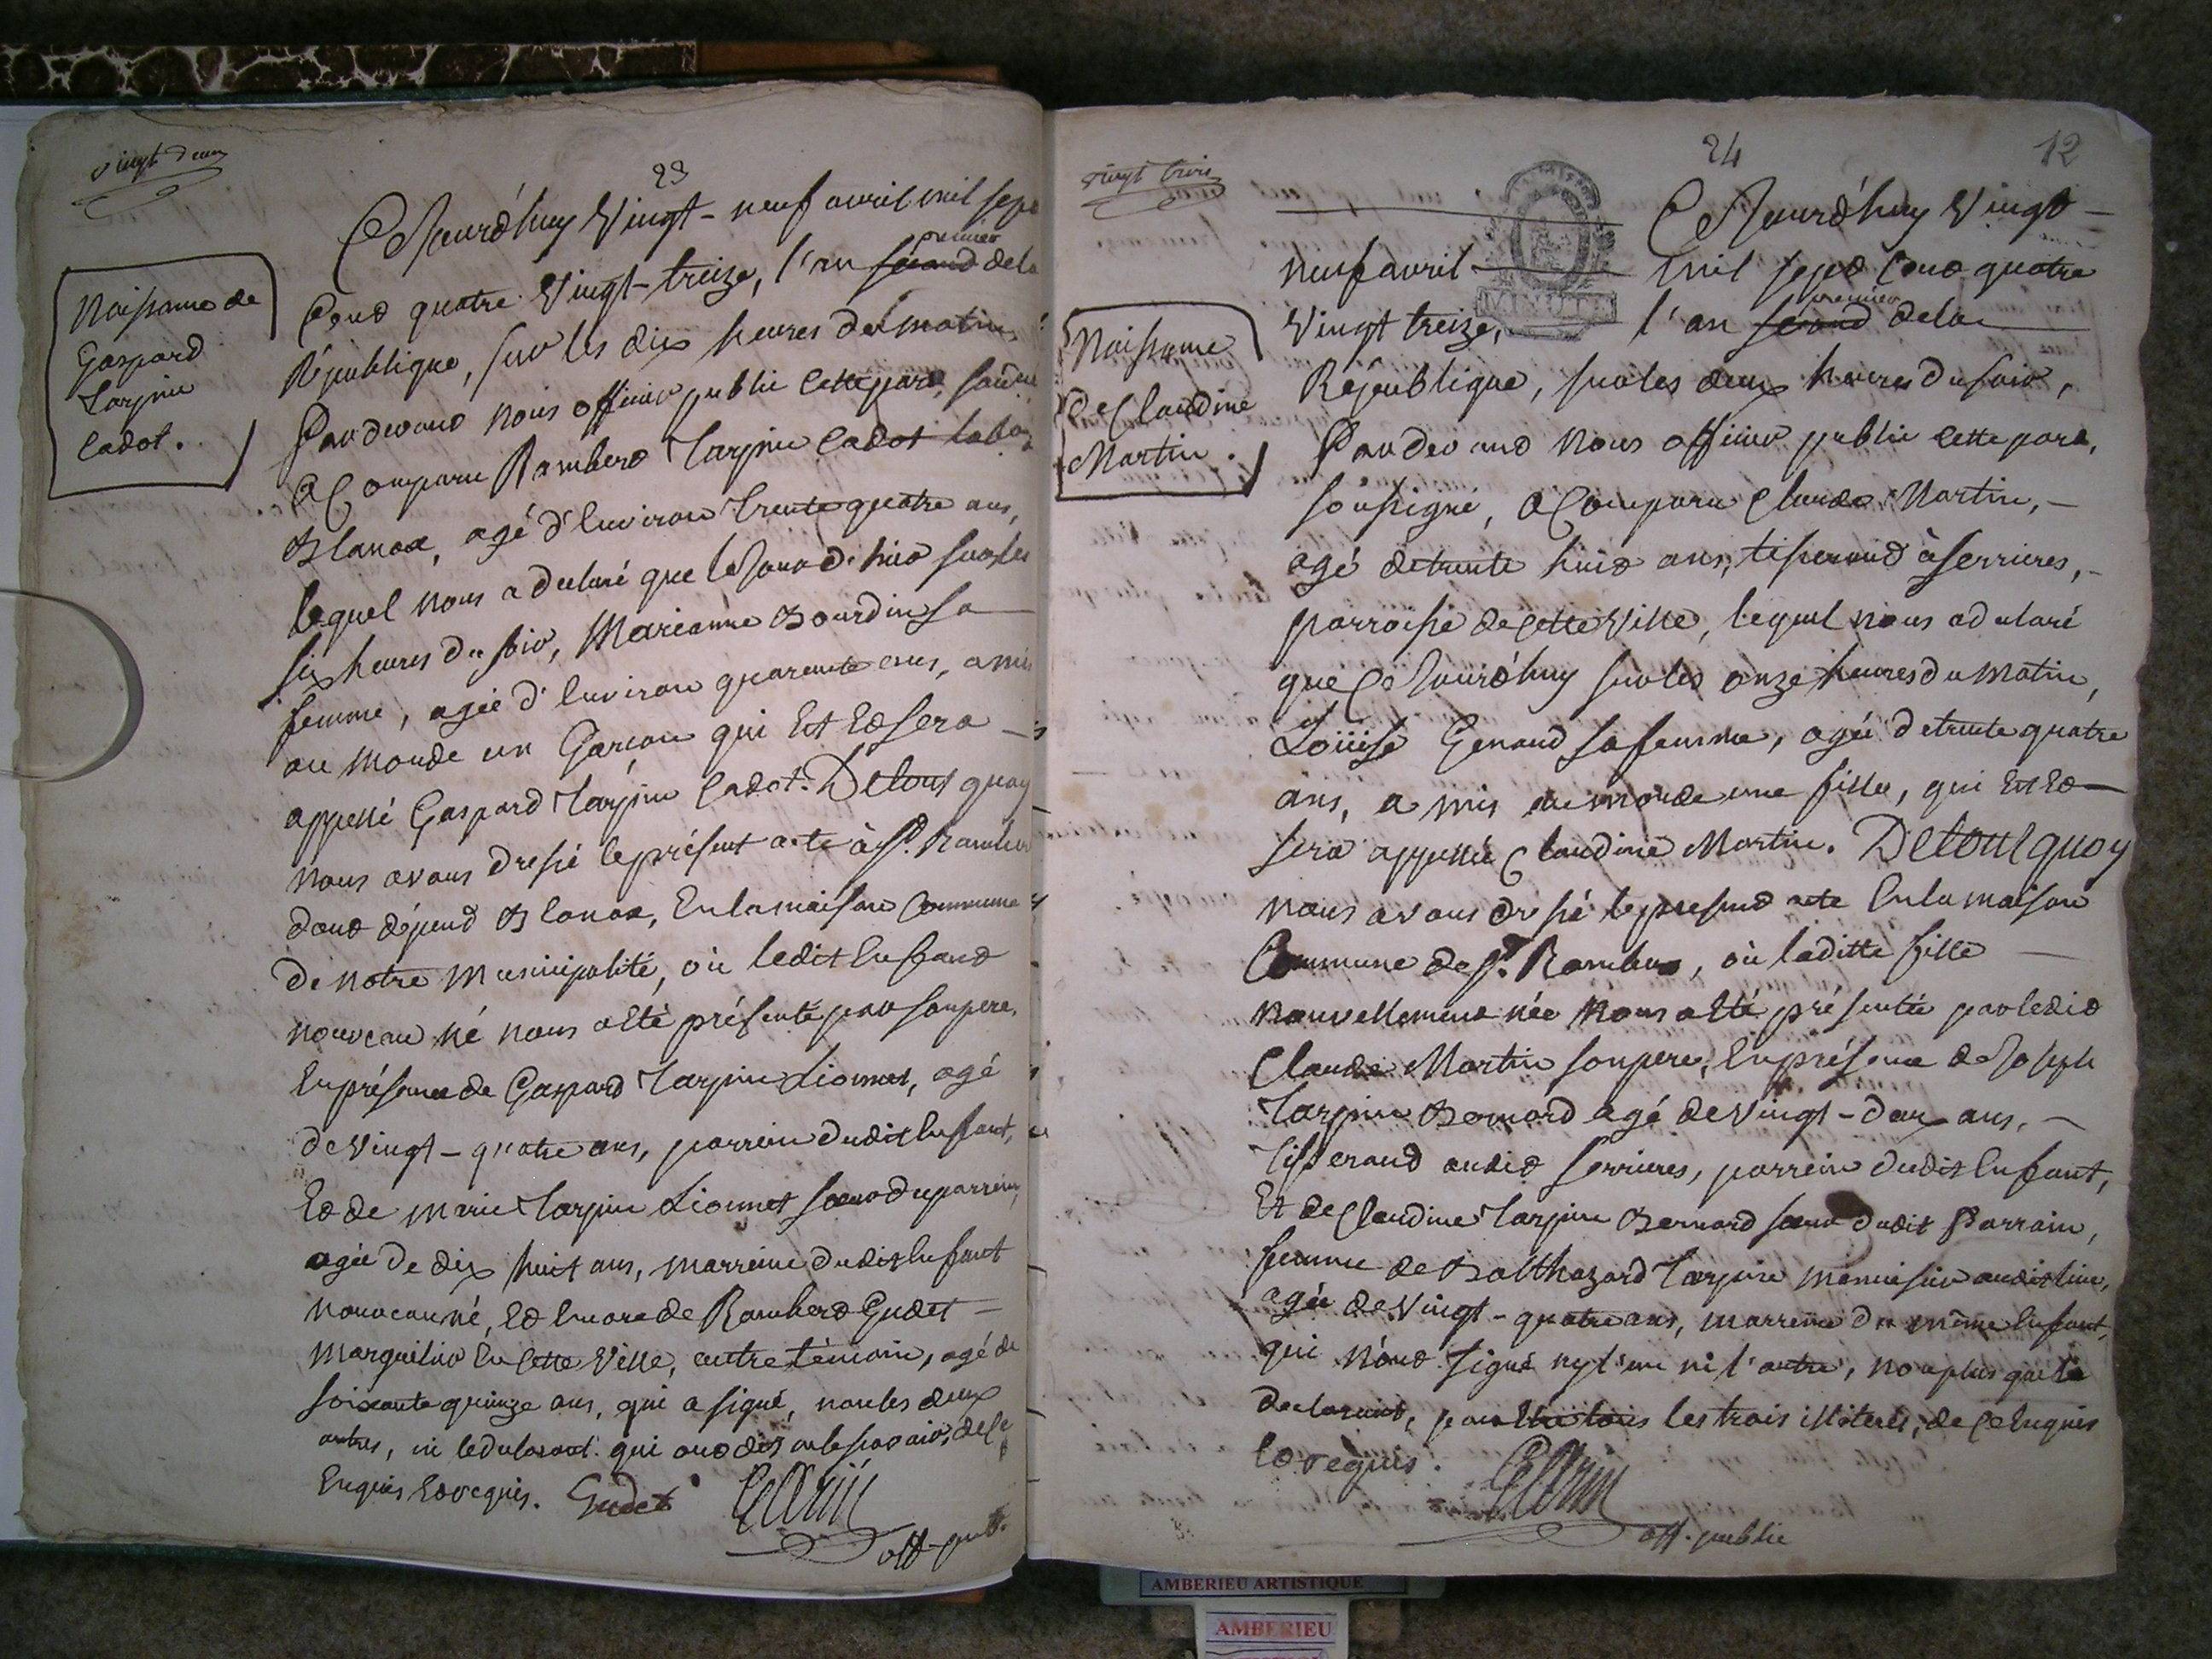 vingt deux
23
Naissance de
Gaspard
Tarpin
Cadot.
Cejourd'huy Vingt-neuf avril mil sept
Cent quatre Vingt-treize, l'an second premier de la
République, sur les dix heures du matin
Pardevant nous officier public cette part, sousné
a Comparu Rambert Tarpin Cadot
Blanaz, agé d'Environ trente quatre ans,
lequel nous a declaré que le Jour d'hier sur les
six heures du soir, Marianne Bourdin sa
femme, agée d'Environ quarante ans, a mis
au monde un Garcon qui Est Et sera
appellé Gaspard Tarpin Cadot. De tout quoy
nous avons dressé le présent acte à St. Rambert
dont dépend Blanaz, En la maison Commune
de notre municipalité, où ledit Enfant
nouveau né nous a Eté présenté par son pere,
En présence de Gaspard Tarpin Lionnet, agé
de Vingt-quatre ans, parrein dudit Enfant,
Et de Marie Tarpin Lionnet soeur du parrein,
agée de dix huit ans, marreine dudit Enfant
nouveau né, Et Encore de Rambert Gudet
Marguilier En cette Ville, autre témoin, agé de
soixante quinze ans, qui a signé, non les deux
autres, ni le declarant qui ont dit ne le savoir, de ce
Enquis Et requis. Gudet
off. pub.
vingt trois
24
12
MINUTE
Naissance
de Claudine
Martin.
Cejourd'huy Vingt-
neuf avril mil sept Cent quatre
Vingt treize, l'an second premier de la
République, sur les deux heures du soir,
Pardevant nous officier public cette part,
soussigné, a Comparu Claude Martin,
agé de trente huit ans, tisserand à Serrieres,
parroisse de cette Ville, lequel nous a declaré
que Cejourd'huy sur les onze heures du matin,
Loüise Genaud sa femme, agée de trente quatre
ans, a mis au monde une fille, qui Est Et
sera appellée Claudine Martin. De tout quoy
nous avons dressé le present acte En la maison
Commune de St. Rambert, où laditte fille
nouvellement née nous a Eté présentée par ledit
Claude Martin son pere, En présence de Joseph
Tarpin Bernard agé de Vingt-deux ans,
Tisserand audit Serrieres, parrein dudit Enfant,
Et de Claudine Tarpin Bernard soeur dudit Parrain,
femme de Balthazard Tarpin audit lieu,
agée de Vingt-quatre ans, marreine du même Enfant,
qui n'ont signé ny l'un ni l'autre, non plus que le
declarant, pour les trois illiterés, de ce Enquis
Et requis.
off. public
AMBERIEU ARTISTIQUE
AMBERIEU